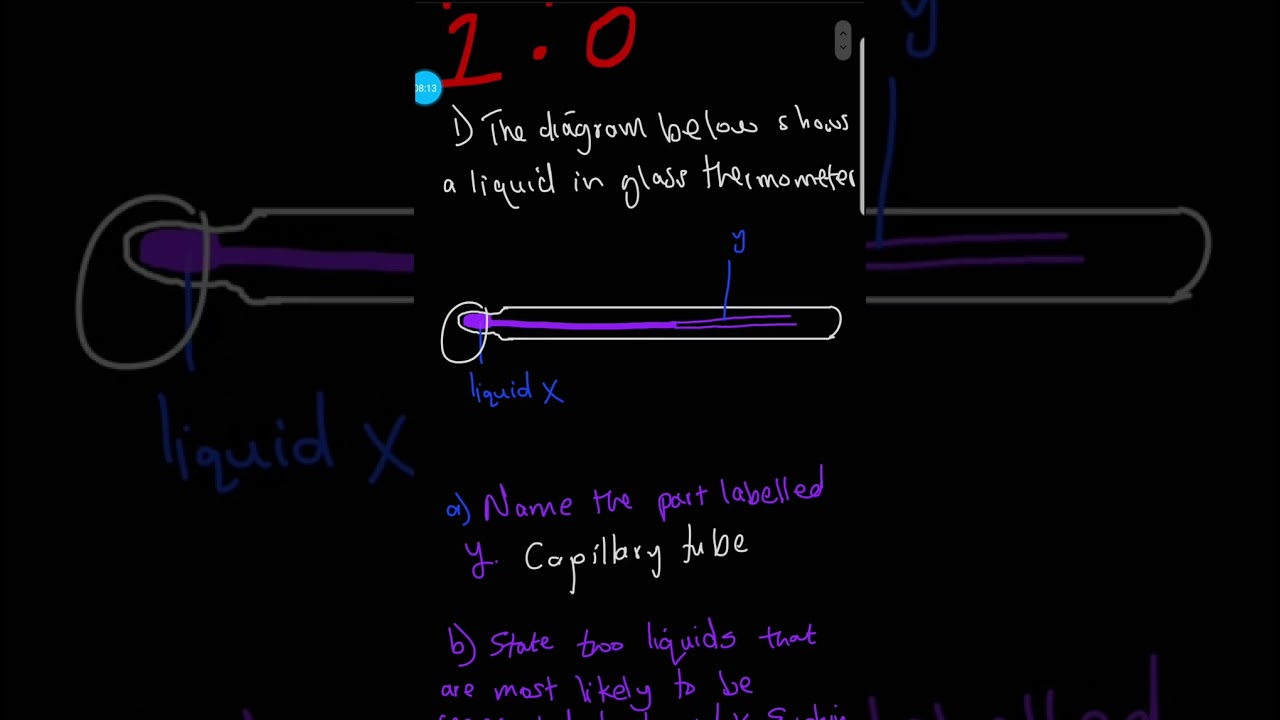 1.0
08:13
1) The diagram below shows
a liquid in glass thermometer
y
liquid X
a) Name the part labelled
y. Capillary tube
b) State two liquids that
are most likely to be